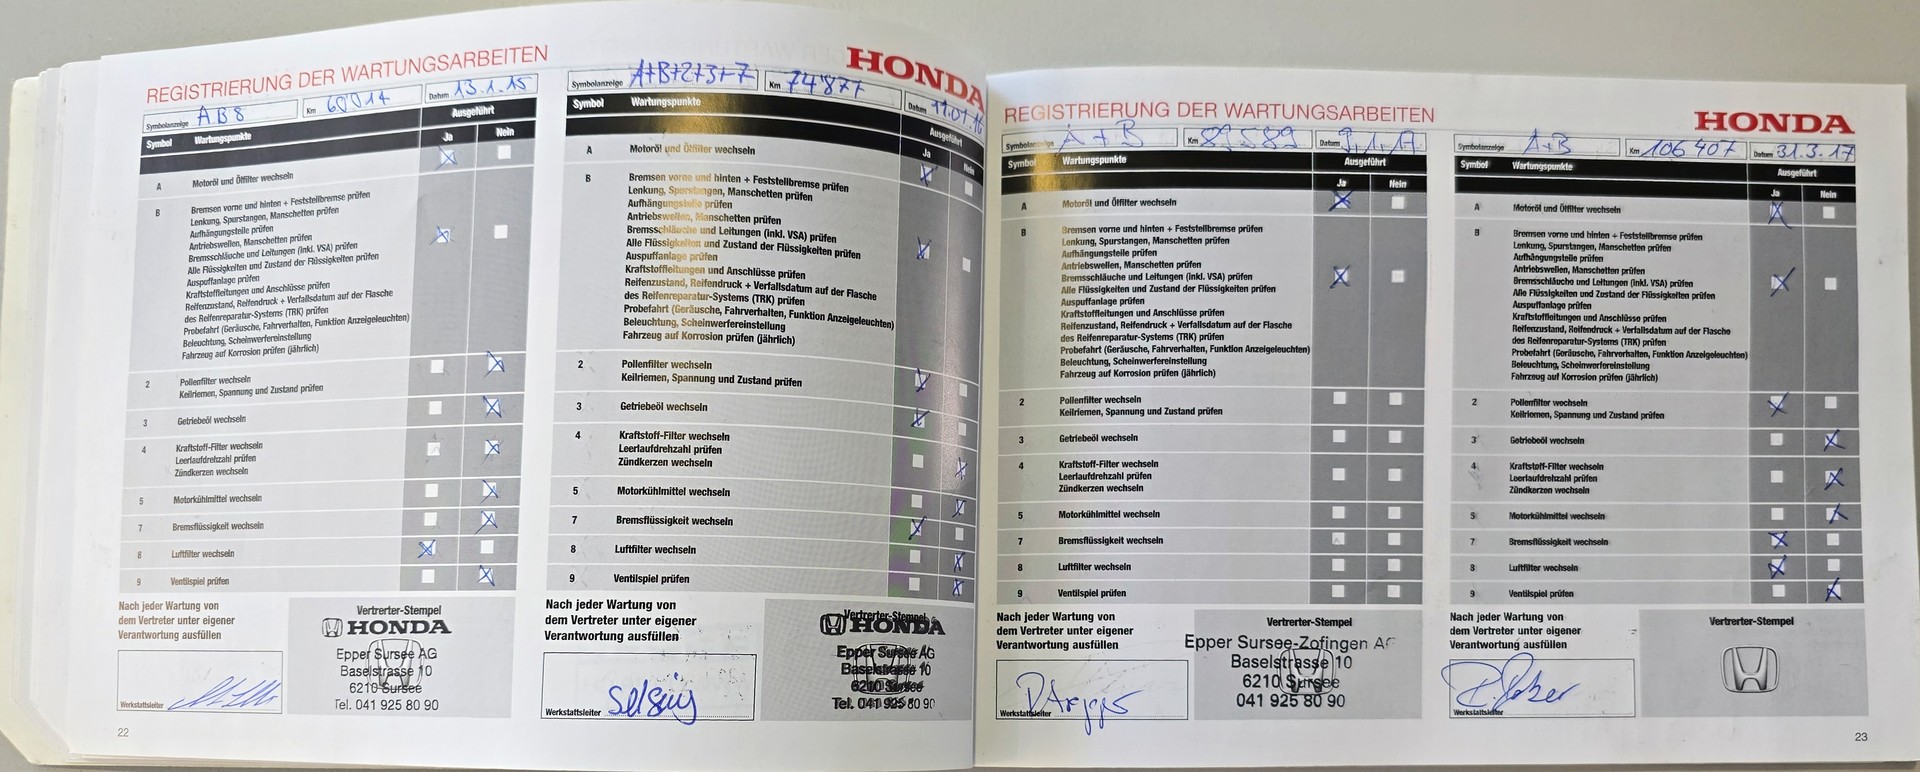 REGISTRIERUNG DER WARTUNGSARBEITEN
HONDA
Symbolanzeige AB8 Km 60'014 Datum 13.1.15
Symbol Wartungspunkte Ausgeführt
Ja Nein
A Motoröl und Ölfilter wechseln
B Bremsen vorne und hinten + Feststellbremse prüfen
Lenkung, Spurstangen, Manschetten prüfen
Aufhängungsteile prüfen
Antriebswellen, Manschetten prüfen
Bremsschläuche und Leitungen (inkl. VSA) prüfen
Alle Flüssigkeiten und Zustand der Flüssigkeiten prüfen
Auspuffanlage prüfen
Kraftstoffleitungen und Anschlüsse prüfen
Reifenzustand, Reifendruck + Verfallsdatum auf der Flasche
des Reifenreparatur-Systems (TRK) prüfen
Probefahrt (Geräusche, Fahrverhalten, Funktion Anzeigeleuchten)
Beleuchtung, Scheinwerfereinstellung
Fahrzeug auf Korrosion prüfen (jährlich)
2 Pollenfilter wechseln
Keilriemen, Spannung und Zustand prüfen
3 Getriebeöl wechseln
4 Kraftstoff-Filter wechseln
Leerlaufdrehzahl prüfen
Zündkerzen wechseln
5 Motorkühlmittel wechseln
7 Bremsflüssigkeit wechseln
8 Luftfilter wechseln
9 Ventilspiel prüfen
Nach jeder Wartung von
dem Vertreter unter eigener
Verantwortung ausfüllen
Werkstattsleiter
Vertrerter-Stempel
HONDA
Epper Sursee AG
Baselstrasse 10
6210 Sursee
Tel. 041 925 80 90
22
Symbolanzeige A+B+2+3+7 Km 74'877 Datum 11.01.16
Symbol Wartungspunkte Ausgeführt
Ja Nein
A Motoröl und Ölfilter wechseln
B Bremsen vorne und hinten + Feststellbremse prüfen
Lenkung, Spurstangen, Manschetten prüfen
Aufhängungsteile prüfen
Antriebswellen, Manschetten prüfen
Bremsschläuche und Leitungen (inkl. VSA) prüfen
Alle Flüssigkeiten und Zustand der Flüssigkeiten prüfen
Auspuffanlage prüfen
Kraftstoffleitungen und Anschlüsse prüfen
Reifenzustand, Reifendruck + Verfallsdatum auf der Flasche
des Reifenreparatur-Systems (TRK) prüfen
Probefahrt (Geräusche, Fahrverhalten, Funktion Anzeigeleuchten)
Beleuchtung, Scheinwerfereinstellung
Fahrzeug auf Korrosion prüfen (jährlich)
2 Pollenfilter wechseln
Keilriemen, Spannung und Zustand prüfen
3 Getriebeöl wechseln
4 Kraftstoff-Filter wechseln
Leerlaufdrehzahl prüfen
Zündkerzen wechseln
5 Motorkühlmittel wechseln
7 Bremsflüssigkeit wechseln
8 Luftfilter wechseln
9 Ventilspiel prüfen
Nach jeder Wartung von
dem Vertreter unter eigener
Verantwortung ausfüllen
Werkstattsleiter
Vertrerter-Stempel
HONDA
Epper Sursee AG
Baselstrasse 10
6210 Sursee
Tel. 041 925 80 90
REGISTRIERUNG DER WARTUNGSARBEITEN
HONDA
Symbolanzeige A+B Km 89589 Datum 9.1.17
Symbol Wartungspunkte Ausgeführt
Ja Nein
A Motoröl und Ölfilter wechseln
B Bremsen vorne und hinten + Feststellbremse prüfen
Lenkung, Spurstangen, Manschetten prüfen
Aufhängungsteile prüfen
Antriebswellen, Manschetten prüfen
Bremsschläuche und Leitungen (inkl. VSA) prüfen
Alle Flüssigkeiten und Zustand der Flüssigkeiten prüfen
Auspuffanlage prüfen
Kraftstoffleitungen und Anschlüsse prüfen
Reifenzustand, Reifendruck + Verfallsdatum auf der Flasche
des Reifenreparatur-Systems (TRK) prüfen
Probefahrt (Geräusche, Fahrverhalten, Funktion Anzeigeleuchten)
Beleuchtung, Scheinwerfereinstellung
Fahrzeug auf Korrosion prüfen (jährlich)
2 Pollenfilter wechseln
Keilriemen, Spannung und Zustand prüfen
3 Getriebeöl wechseln
4 Kraftstoff-Filter wechseln
Leerlaufdrehzahl prüfen
Zündkerzen wechseln
5 Motorkühlmittel wechseln
7 Bremsflüssigkeit wechseln
8 Luftfilter wechseln
9 Ventilspiel prüfen
Nach jeder Wartung von
dem Vertreter unter eigener
Verantwortung ausfüllen
Werkstattsleiter
Vertrerter-Stempel
Epper Sursee-Zofingen AG
Baselstrasse 10
6210 Sursee
041 925 80 90
Symbolanzeige A+B Km 106 407 Datum 31.3.17
Symbol Wartungspunkte Ausgeführt
Ja Nein
A Motoröl und Ölfilter wechseln
B Bremsen vorne und hinten + Feststellbremse prüfen
Lenkung, Spurstangen, Manschetten prüfen
Aufhängungsteile prüfen
Antriebswellen, Manschetten prüfen
Bremsschläuche und Leitungen (inkl. VSA) prüfen
Alle Flüssigkeiten und Zustand der Flüssigkeiten prüfen
Auspuffanlage prüfen
Kraftstoffleitungen und Anschlüsse prüfen
Reifenzustand, Reifendruck + Verfallsdatum auf der Flasche
des Reifenreparatur-Systems (TRK) prüfen
Probefahrt (Geräusche, Fahrverhalten, Funktion Anzeigeleuchten)
Beleuchtung, Scheinwerfereinstellung
Fahrzeug auf Korrosion prüfen (jährlich)
2 Pollenfilter wechseln
Keilriemen, Spannung und Zustand prüfen
3 Getriebeöl wechseln
4 Kraftstoff-Filter wechseln
Leerlaufdrehzahl prüfen
Zündkerzen wechseln
5 Motorkühlmittel wechseln
7 Bremsflüssigkeit wechseln
8 Luftfilter wechseln
9 Ventilspiel prüfen
Nach jeder Wartung von
dem Vertreter unter eigener
Verantwortung ausfüllen
Werkstattsleiter
Vertrerter-Stempel
23